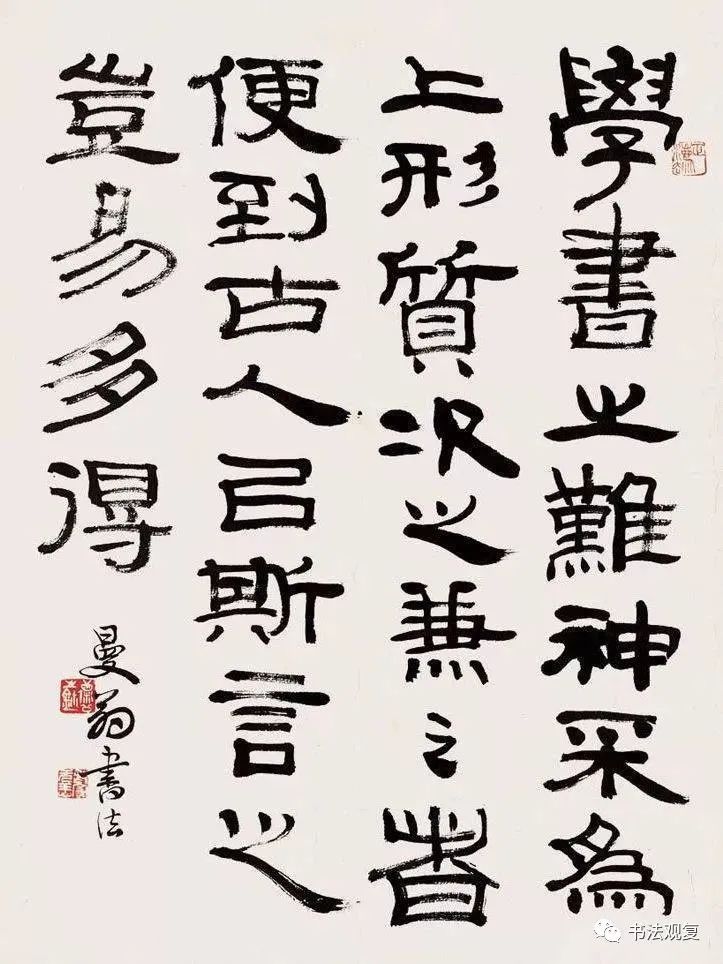 學書之難神采為
上形質次之兼之者
便到古人以斯言之
豈易多得
曼翁書法
书法观复